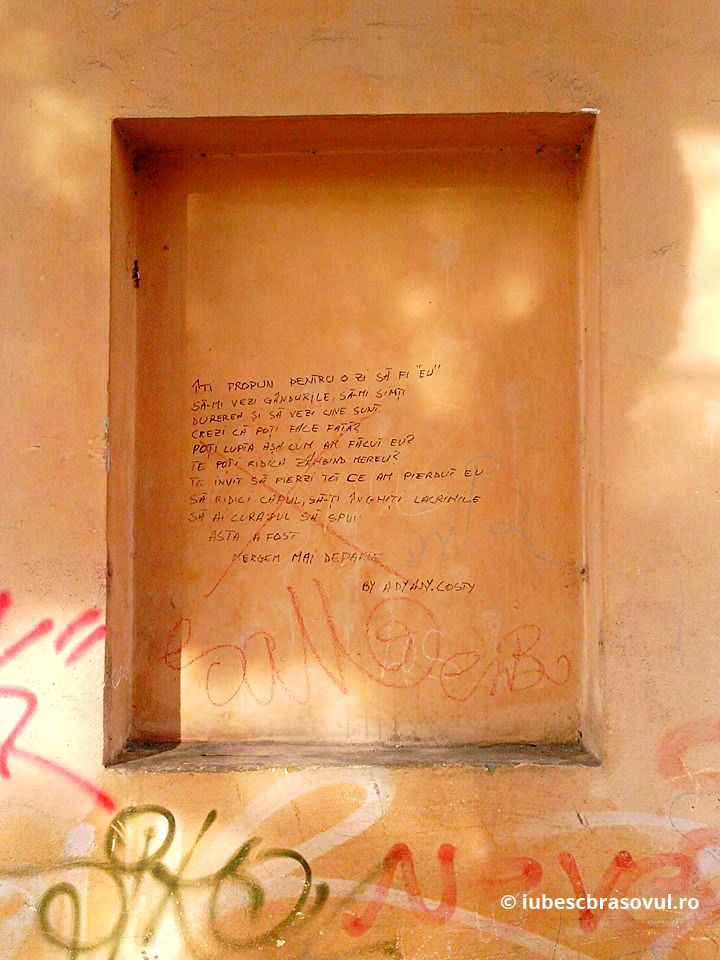 ÎȚI PROPUN PENTRU O ZI SĂ FI "EU"
SĂ-MI VEZI GÂNDURILE, SĂ-MI SIMȚI
DUREREA ȘI SĂ VEZI CINE SUNT
CREZI CĂ POȚI FACE FAȚĂ?
POȚI LUPTA AȘA CUM AM FĂCUT EU?
TE POȚI RIDICA ZÂMBIND MEREU?
TE INVIT SĂ PIERZI TOT CE AM PIERDUT EU
SĂ RIDICI CAPUL, SĂ-ȚI ÎNGHIȚI LACRIMILE
SĂ AI CURAJUL SĂ SPUI:
ASTA A FOST
MERGEM MAI DEPARTE
BY ADYADY.COSTY
© iubescbrasovul.ro